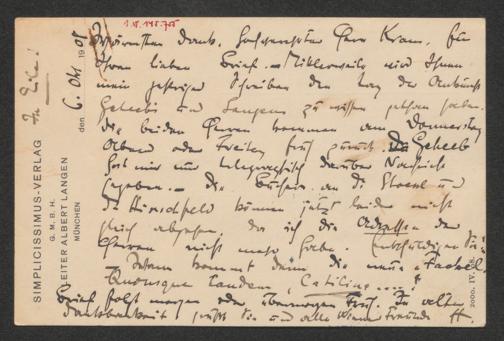 1.N. 148.755
In Eile!
SIMPLICISSIMUS-VERLAG
G. M. B. H.
LEITER ALBERT LANGEN
MÜNCHEN
den 6. Okt. 1908
Dank, Herr Kraus, für
Ihren lieben Brief. – Mittlerweile wird Ihnen
mein gestriges Schreiben den Tag der Ankunft
Geheebs und Langens zu wissen gethan haben.
Die beiden Herren kommen am Donnerstag
Abend oder Freitag früh zurück. Geheeb
hat mir nur telegraphisch darüber Nachricht
gegeben. – Die an die Stoessl und
die Hirschfeld können jetzt leider nicht
gleich abgehen, da ich die Adressen der
Herren nicht mehr habe. Entschuldigen Sie!
Wann kommt denn die neue „Fackel“
Quousque tandem, Catilina ....!
Brief folgt morgen oder übermorgen früh. In alter
Dankbarkeit grüßt Sie und alle Wiener Freunde
2000. IV. 08.